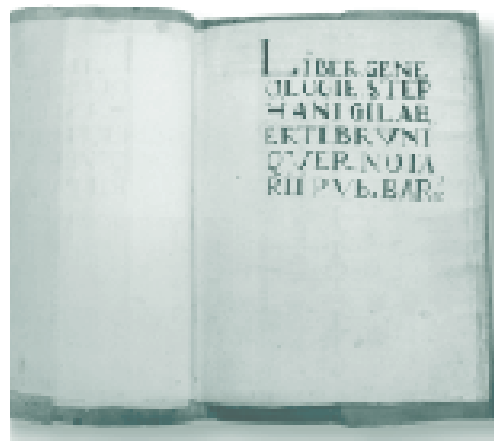 LIBER GENE
OLOGIE STEP
HANI GILAB
ERTI BRVNI
QVER NOTA
RII PVB. BAR